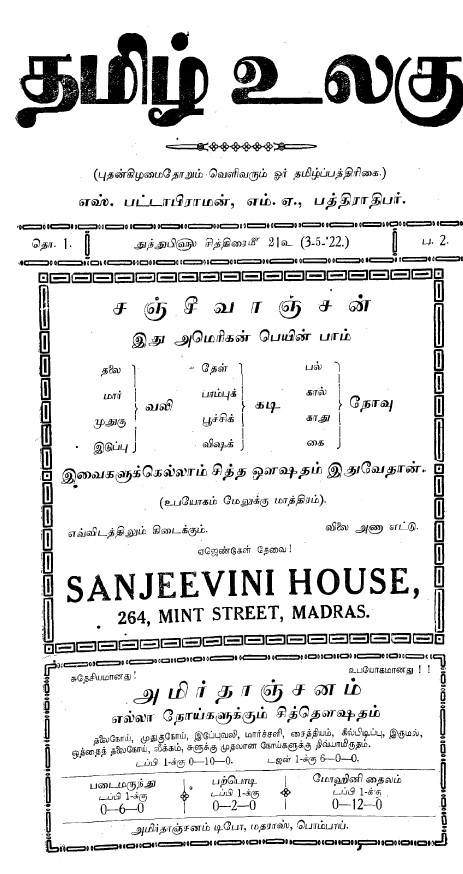 தமிழ் உலகு
(புதன்கிழமைதோறும் வெளிவரும் ஓர் தமிழ்ப்பத்திரிகை.)
எஸ். பட்டாபிராமன், எம். ஏ., பத்திராதிபர்.
தொ. 1.
துந்துபிளு சித்திரைமீ 21உ (3-5-'22.)
ப. 2.
சஞ்சீவாஞ்சன்
இது அமெரிகன் பெயின் பாம்
தலை
மார்
முதுகு
இடுப்பு
வலி
தேள்
பாம்புக்
பூச்சிக்
விஷக்
கடி
பல்
கால்
காது
கை
நோவு
இவைகளுக்கெல்லாம் சித்த ஔஷதம் இதுவேதான்.
(உபயோகம் மேலுக்கு மாத்திரம்).
எவ்விடத்திலும் கிடைக்கும்.
விலை அணா எட்டு.
ஏஜெண்டுகள் தேவை!
SANJEEVINI HOUSE,
264, MINT STREET, MADRAS.
சுதேசியமானது!
உபயோகமானது!!
அமிர்தாஞ்சனம்
எல்லா நோய்களுக்கும் சித்தௌஷதம்
தலைநோய், முதுகுநோய், இடுப்புவலி, மார்ச்சளி, சைத்தியம், கீல்பிடிப்பு, இருமல்,
ஒத்தைத் தலைநோய், வீக்கம், சுளுக்கு முதலான நோய்களுக்கு திவ்யாமிருதம்.
டப்பி 1-க்கு 0—10—0.
டஜன் 1-க்கு 6—0—0.
படைமருந்து
டப்பி 1-க்கு
0—6—0
பற்பொடி
டப்பி 1-க்கு
0—2—0
மோஹினி தைலம்
டப்பி 1-க்கு
0—12—0
அமிர்தாஞ்சனம் டிபோ, மதராஸ், பொம்பாய்.